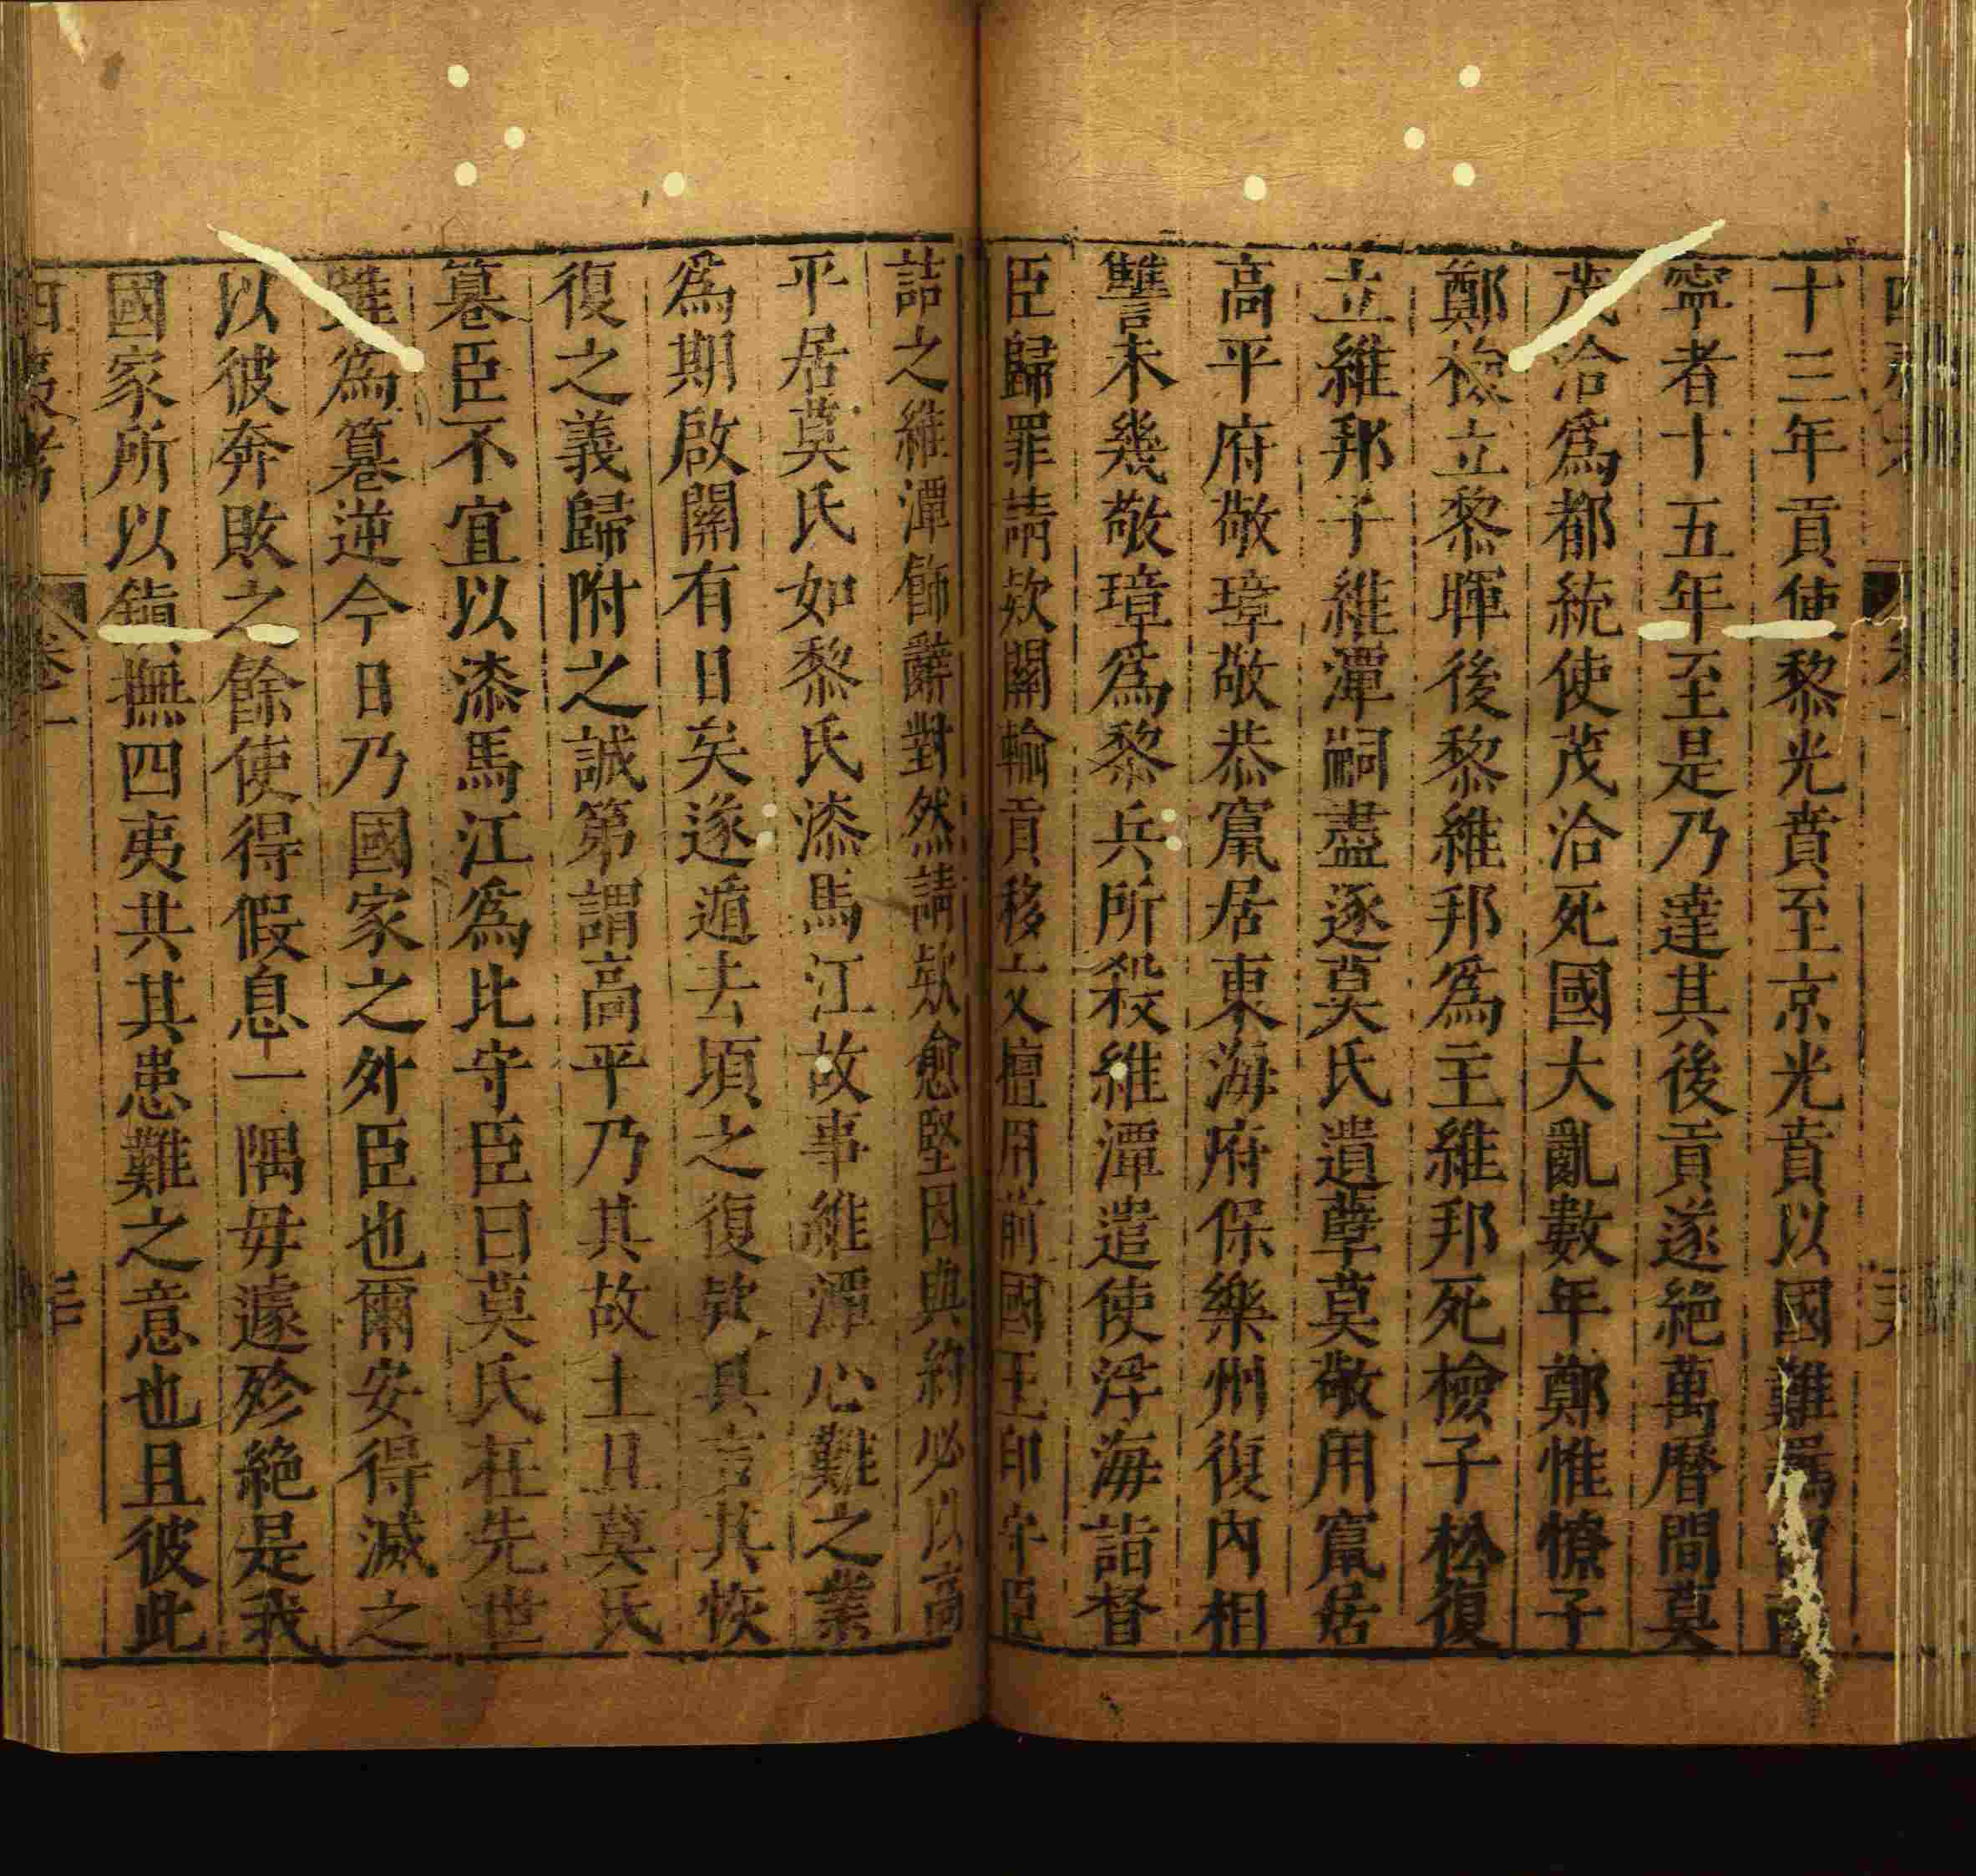 十三年貢使黎光賁至京光賁以國難羈留南
寧者十五年至是乃達其後貢遂絕萬曆間莫
茂洽爲都統使茂洽死國大亂數年鄭惟憭子
鄭檢立黎暉後黎維邦爲主維邦死檢子松復
立維邦子維潭嗣盡逐莫氏遺孽莫敬用竄居
高平府敬璋敬恭竄居東海府保樂州復內相
讐未幾敬璋爲黎兵所殺維潭遣使浮海詣督
臣歸罪請欵關輸貢移文擅用前國王印守臣
詰之維潭飾辭對然請欵愈堅因與約必以高
平居莫氏如黎氏漆馬江故事維潭心難之業
爲期啟關有日矣遂遁去頃之復欵具言其恢
復之義歸附之誠第謂高平乃其故土且莫氏
簒臣不宜以漆馬江爲比守臣曰莫氏在先世
雖爲簒逆今日乃國家之外臣也爾安得滅之
以彼奔敗之餘使得假息一隅毋遽殄絕是我
國家所以鎮撫四夷共其患難之意也且彼此
四夷考 卷一